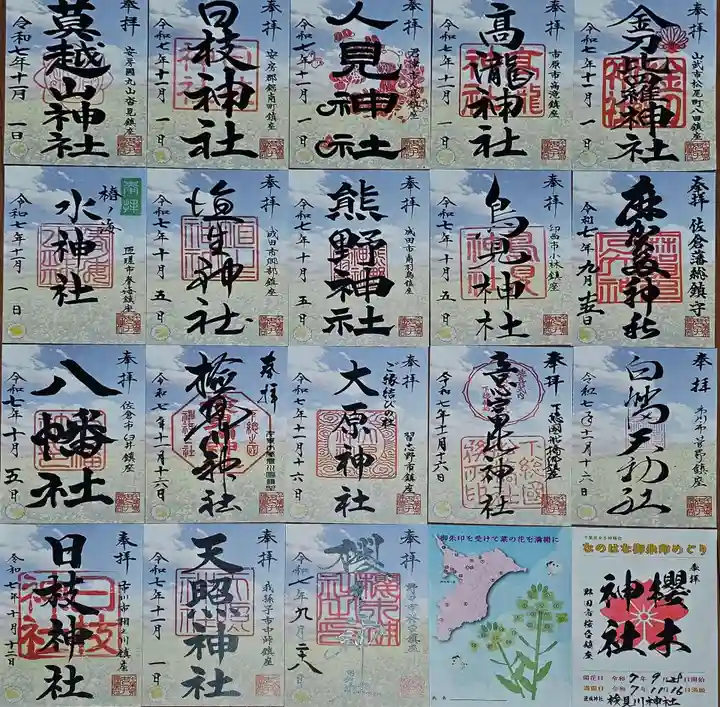 奉拝
莫越山神社
安房國丸山沓見鎮座
令和七年十一月一日
奉拝
日枝神社
安房郡鋸南町鎮座
令和七年十一月一日
奉拝
人見神社
君津市人見鎮座
奉拝
高瀧神社
市原市高滝鎮座
令和七年十一月一日
奉拝
金刀比羅神社
山武市松尾町八田鎮座
令和七年十一月一日
奉拝
水神社
匝瑳市椿海鎮座
令和七年十一月一日
奉拝
埴生神社
成田市郷部鎮座
令和七年十月五日
奉拝
熊野神社
成田市南羽鳥鎮座
令和七年十月五日
奉拝
鳥見神社
印西市小林鎮座
令和七年十月五日
奉拝
佐倉藩総鎮守
麻賀多神社
奉拝
八幡社
佐倉市臼井鎮座
令和七年十月五日
奉拝
検見川神社
令和七年十一月十六日
奉拝
ご縁結びの杜
大原神社
習志野市鎮座
令和七年十一月十六日
奉拝
意富比神社
令和七年十一月十六日
奉拝
白幡天神社
市川市菅野鎮座
令和七年十一月十六日
奉拝
日枝神社
市川市相之川鎮座
奉拝
天照神社
我孫子市中峠鎮座
令和七年十一月一日
奉拝
御朱印を受けて菜の花を満開に
氏名
千葉県青年神職会
なのはな御朱印めぐり
奉拝
櫻木神社
野田市桜台鎮座
開花日 令和7年9月28日開始
満開日 令和7年11月16日満願
達成神社 検見川神社